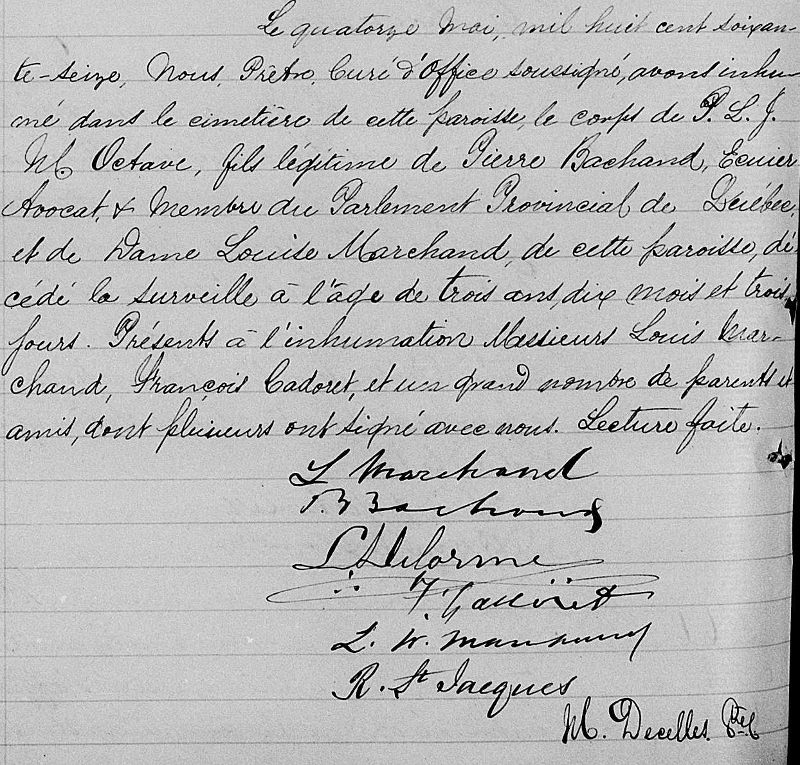 Le quatorze Mai, mil huit cent soixan-
te-seize, Nous, Prêtre, Curé d'Office soussigné, avons inhu-
mé dans le cimetière de cette paroisse, le corps de P. L. J.
M. Octave, fils légitime de Pierre Bachand, Ecuier
Avocat, & Membre du Parlement Provincial de Québec,
et de Dame Louise Marchand, de cette paroisse, dé
cédé la surveille à l'âge de trois ans, dix mois et trois
jours. Présents à l'inhumation Messieurs Louis Mar-
chand, François Cadoret, et un grand nombre de parents et
amis, dont plusieurs ont signé avec nous. Lecture faite.
L Marchand
P. Bachand
L. Delorme
F. Cadoret
L. W.
R. St Jacques
M. Decelles. Ptre